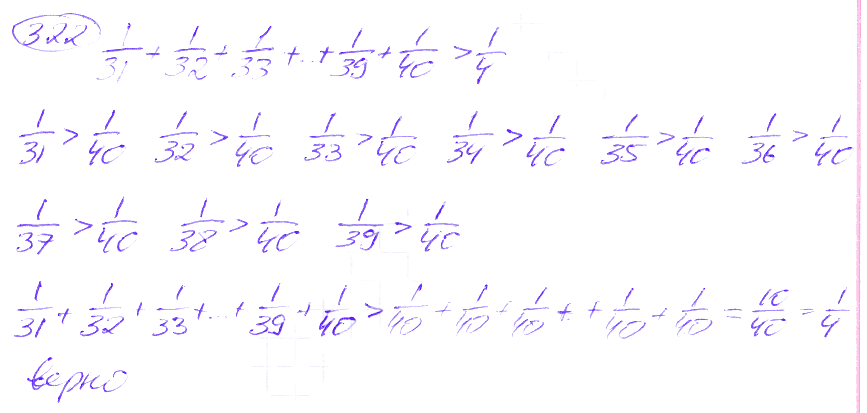 322 1/31 + 1/32 + 1/33 + ... + 1/39 + 1/40 > 1/4
1/31 > 1/40 1/32 > 1/40 1/33 > 1/40 1/34 > 1/40 1/35 > 1/40 1/36 > 1/40
1/37 > 1/40 1/38 > 1/40 1/39 > 1/40
1/31 + 1/32 + 1/33 + ... + 1/39 + 1/40 > 1/40 + 1/40 + 1/40 + .. + 1/40 + 1/40 = 10/40 = 1/4
верно